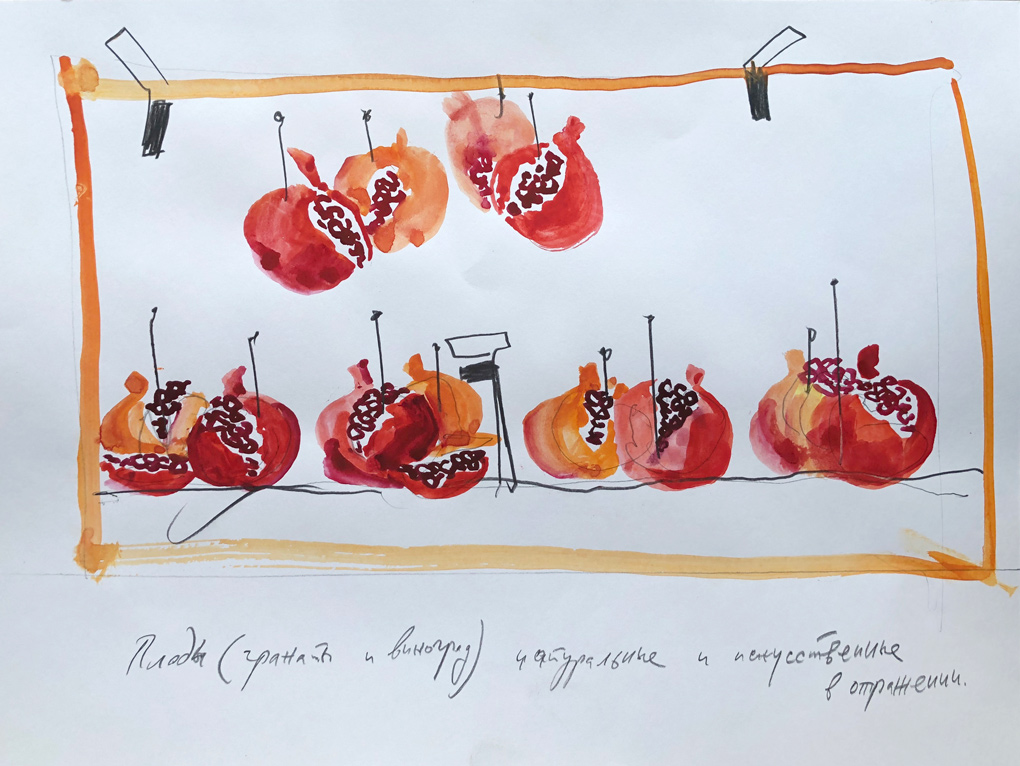 Плоды (гранаты и виноград) натуральные и искусственные
в отражении.